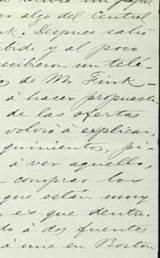 or algo del Central
k. Despues salió
bide y al poco
recibieron un telé-
o de Mr. Fink -
- á hacer propuesta
de las ofertas
volvió a explicar,
quinientos, pi-
á ver aquello,
- comprar los
que están muy
- es que dentro
do á dos fuentes
á una en Boston